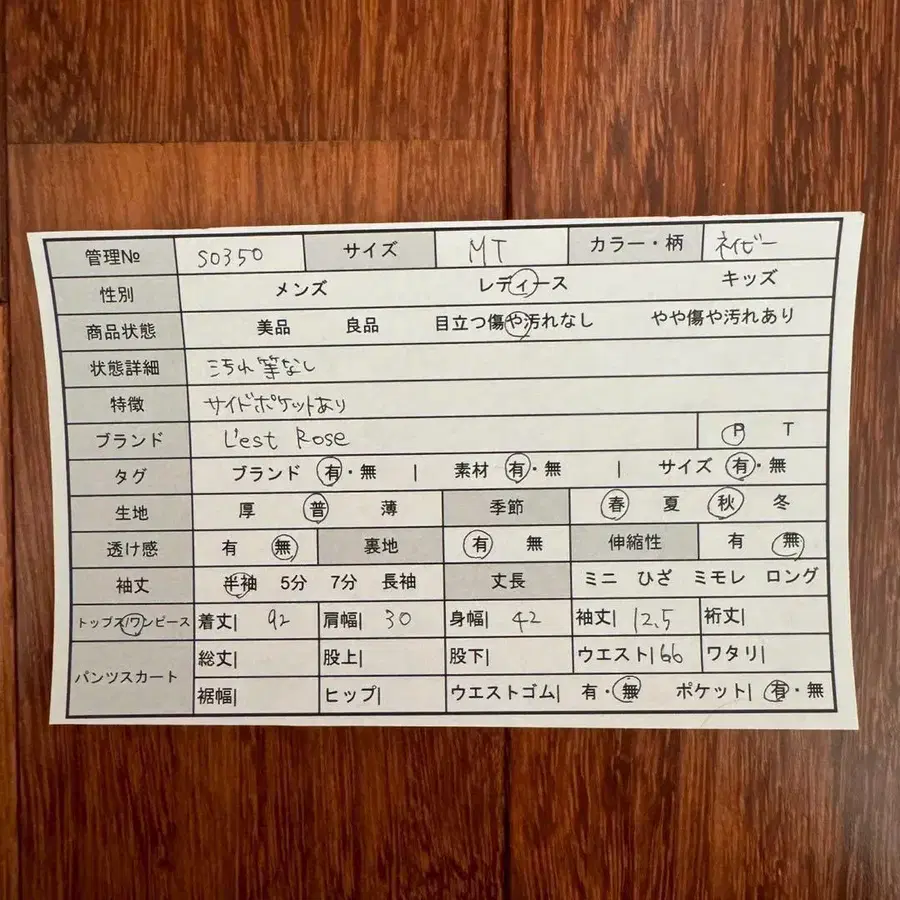 管理№ S0350 サイズ MT カラー・柄 ネイビー
性別 メンズ レディース キッズ
商品状態 美品 良品 目立つ傷や汚れなし やや傷や汚れあり
状態詳細 汚れ等なし
特徴 サイドポケットあり
ブランド L'est Rose P T
タグ ブランド 有・無 | 素材 有・無 | サイズ 有・無
生地 厚 普 薄 季節 春 夏 秋 冬
透け感 有 無 裏地 有 無 伸縮性 有 無
袖丈 半袖 5分 7分 長袖 丈長 ミニ ひざ ミモレ ロング
トップス/ワンピース 着丈| 92 肩幅| 30 身幅| 42 袖丈| 12.5 裄丈|
パンツスカート 総丈| 股上| 股下| ウエスト| 66 ワタリ|
裾幅| ヒップ| ウエストゴム| 有・無 ポケット| 有・無